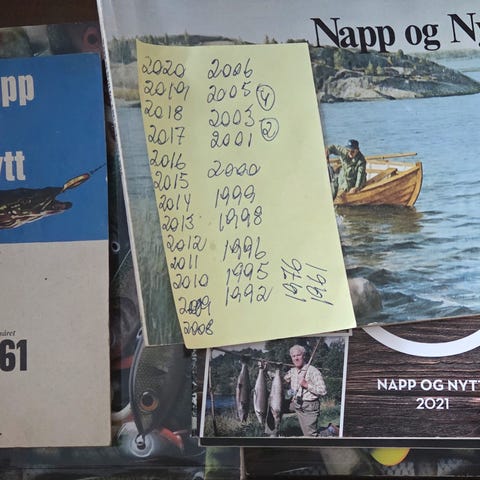 Napp og Ny
pp
tt
året
61
2020 2006
2019 2005 (4)
2018 2003
2017 2001 (2)
2016 2000
2015
2014 1999
2013 1998
2012 1996
2011 1995
2010 1992
2009
2008
1976
1961
NAPP OG NYTT
2021